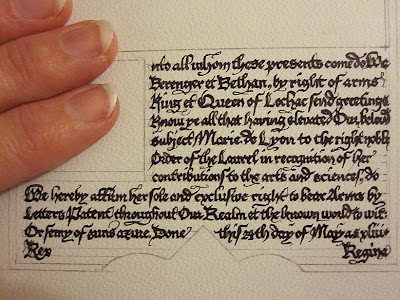 nto all whom these presents come do We
Berenger et Bethan, by right of arms
King et Queen of Lochac send greetings
Know ye all that having elevated Our belov
subject Marie de Lyon to the right noble
Order of the Laurel in recognition of her
contributions to the arts and sciences, do
We hereby affirm her sole and exclusive right to bear Arms by
Letters Patent throughout Our Realm et the known world to wit:
Or semy of suns azure. Done this 24th day of May as xliii
Rex Regina